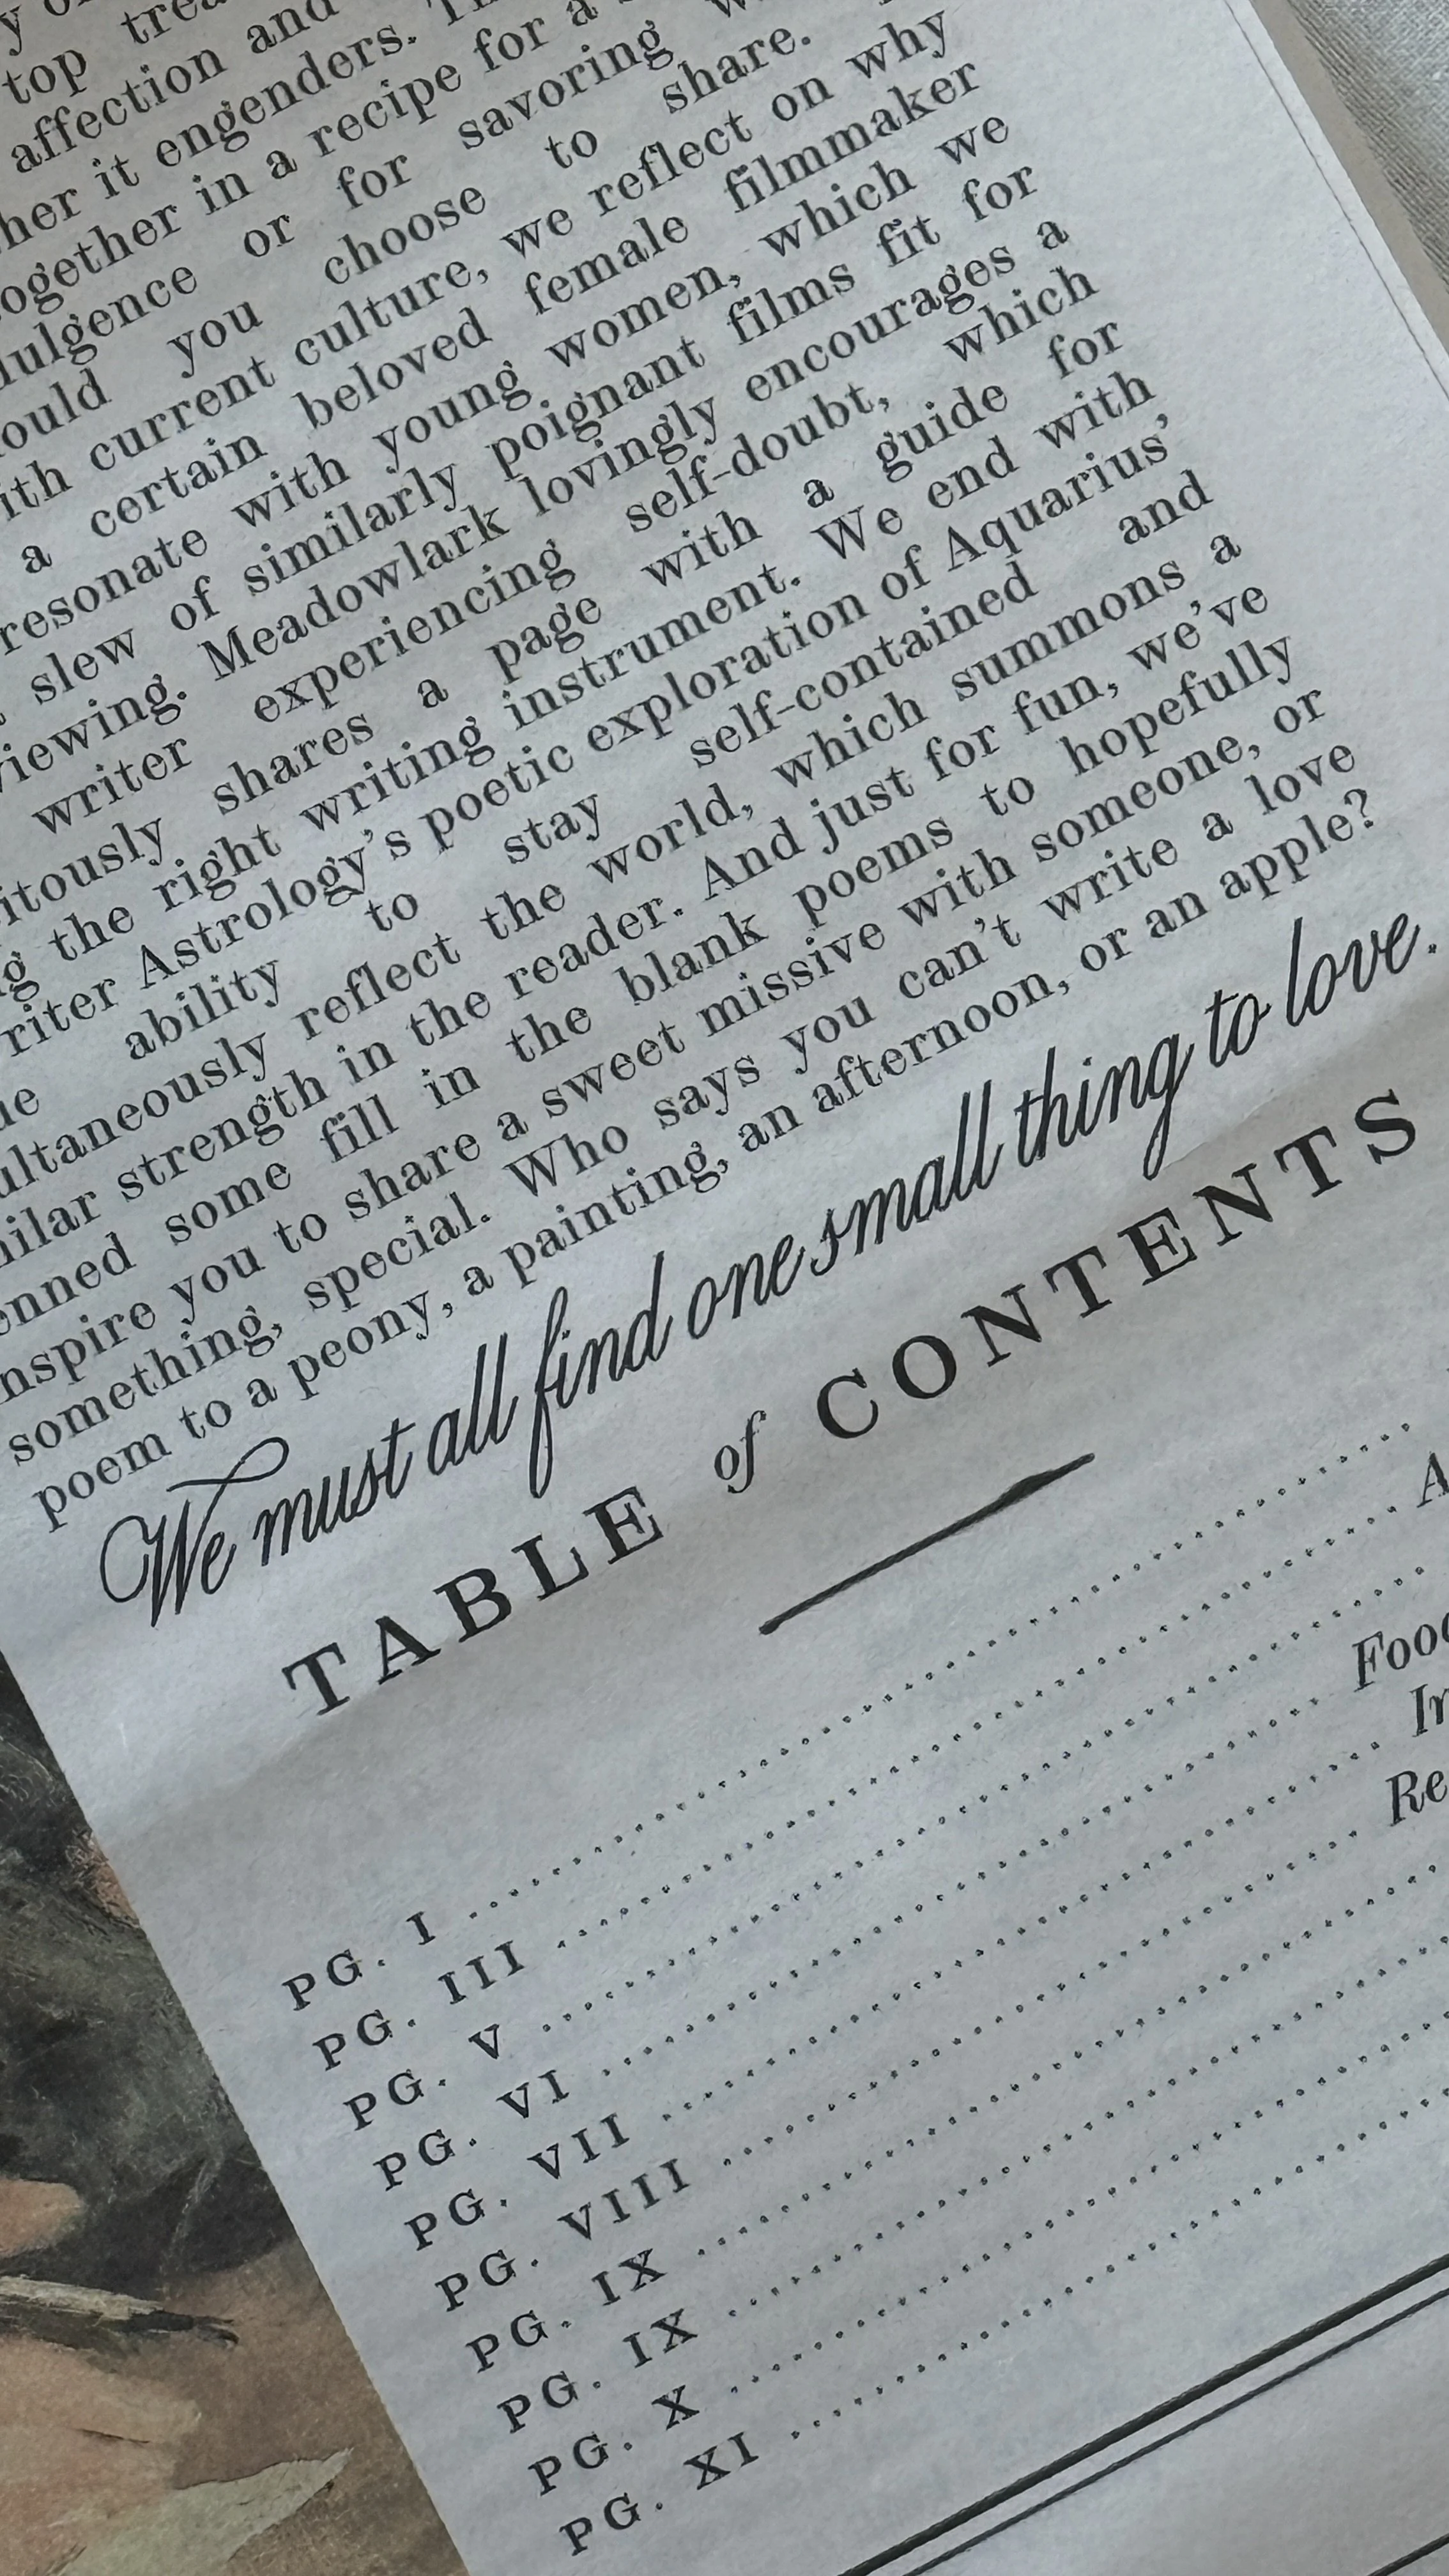 top
affection and
it engenders.
in a recipe for a
or for savoring
you choose to share.
current culture, we reflect on why
a certain beloved female filmmaker
resonate with young women, which we
slew of similarly poignant films fit for
Meadowlark lovingly encourages a
writer experiencing self-doubt, which
shares a page with a guide for
the right writing instrument. We end with,
Astrology's poetic exploration of Aquarius'
ability to stay self-contained and
reflect the world, which summons a
strength in the reader. And just for fun, we've
some fill in the blank poems to hopefully
you to share a sweet missive with someone, or
something, special. Who says you can't write a love
poem to a peony, a painting, an afternoon, or an apple?
We must all find one small thing to love.
TABLE of CONTENTS
PG. I
PG. III
PG. V
PG. VI
PG. VII
PG. VIII
PG. IX
PG. IX
PG. X
PG. XI